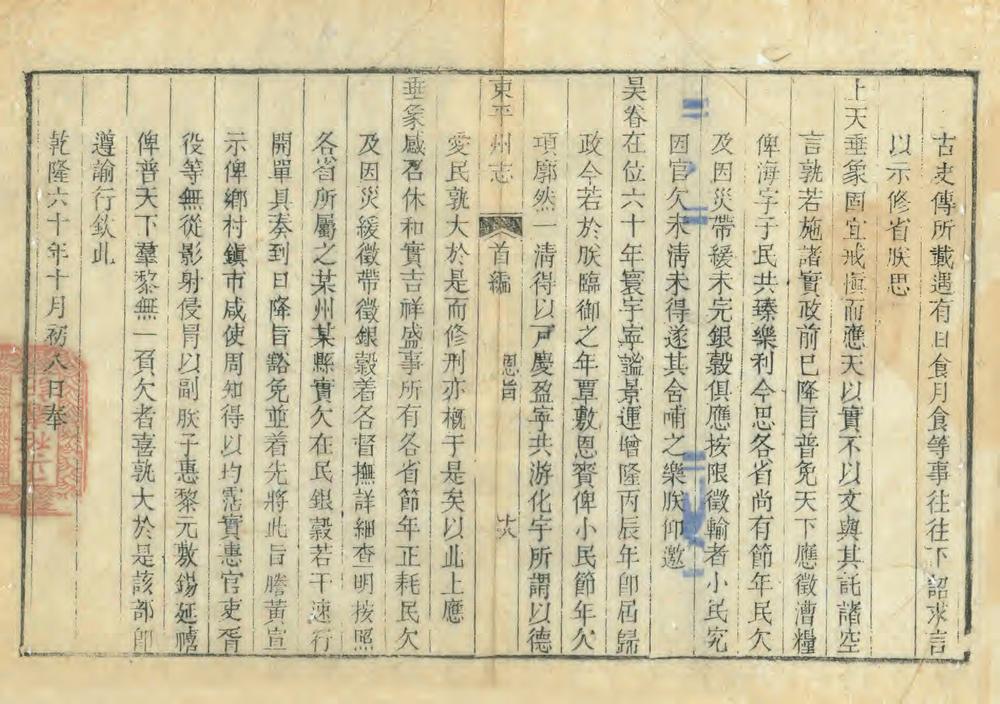 古史傳所載遇有日食月食等事往往下詔求言
以示修省朕思
上天垂象固宜戒愼而應天以實不以文與其託諸空
言孰若施諸實政前已降旨普免天下應徵漕糧
俾海宇于民共臻樂利今思各省尚有節年民欠
及因災帶緩未完銀穀俱應按限徵輸者小民究
因官欠未淸未得遂其含哺之樂朕仰邀
昊眷在位六十年寰宇寧謐景運增隆丙辰年卽屆歸
政今若於朕臨御之年覃敷恩賚俾小民節年欠
項廓然一淸得以戸慶盈寧共游化宇所謂以德
東平州志 首編 恩旨 十八
愛民孰大於是而修刑亦槪于是矣以此上應
垂象感召休和實吉祥盛事所有各省節年正耗民欠
及因災緩徵帶徵銀穀着各督撫詳細查明按照
各省所屬之某州某縣實欠在民銀穀若干速行
開單具奏到日降旨豁免並着先將此旨謄黃宣
示俾鄉村鎭市咸使周知得以均霑實惠官吏胥
役等無從影射侵冐以副朕子惠黎元敷錫延禧
俾普天下羣黎無一負欠者喜孰大於是該部卽
遵諭行欽此
乾隆六十年十月初八日奉